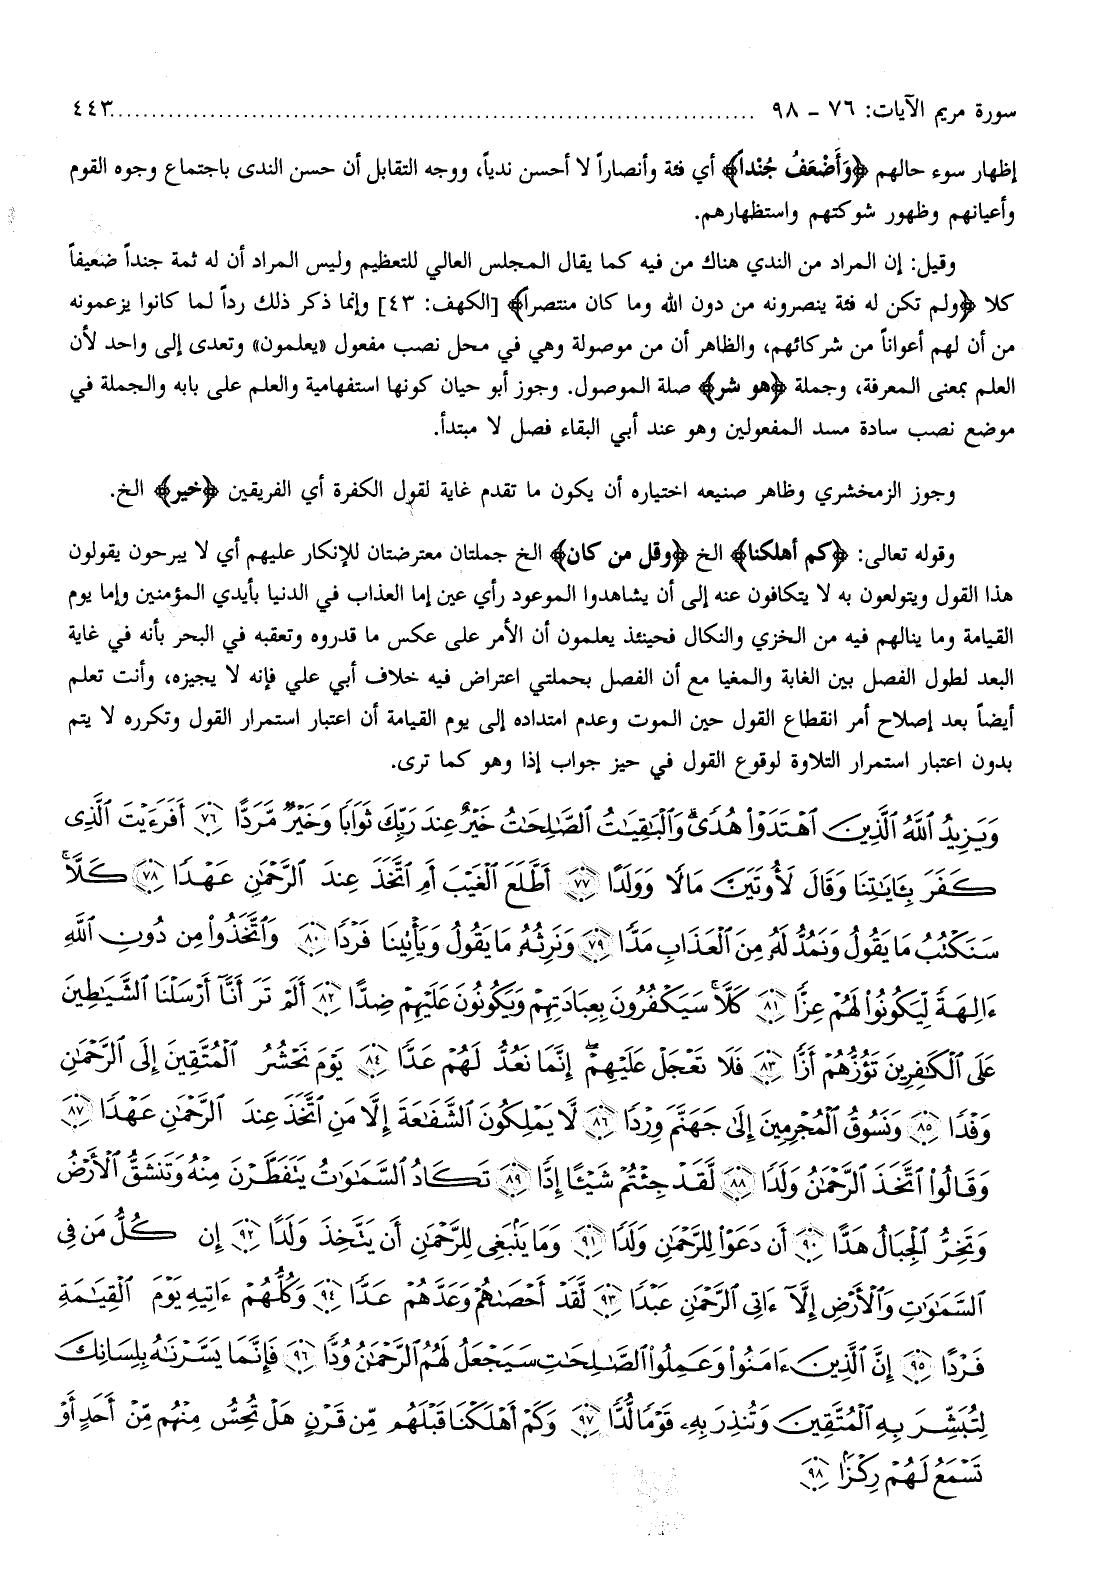 سورة مريم الآيات: ٧٦ - ٩٨ ........................................................................ ٤٤٣
إظهار سوء حالهم ﴿وَأَضْعَفُ جُنْداً﴾ أي فئة وأنصاراً لا أحسن ندياً، ووجه التقابل أن حسن الندى باجتماع وجوه القوم
وأعيانهم وظهور شوكتهم واستظهارهم.
وقيل: إن المراد من الندي هناك من فيه كما يقال المجلس العالي للتعظيم وليس المراد أن له ثمة جنداً ضعيفاً
كلا ﴿ولم تكن له فئة ينصرونه من دون الله وما كان منتصراً﴾ [الكهف: ٤٣] وإنما ذكر ذلك رداً لما كانوا يزعمونه
من أن لهم أعواناً من شركائهم، والظاهر أن من موصولة وهي في محل نصب مفعول «يعلمون» وتعدى إلى واحد لأن
العلم بمعنى المعرفة، وجملة ﴿هو شر﴾ صلة الموصول. وجوز أبو حيان كونها استفهامية والعلم على بابه والجملة في
موضع نصب سادة مسد المفعولين وهو عند أبي البقاء فصل لا مبتدأ.
وجوز الزمخشري وظاهر صنيعه اختياره أن يكون ما تقدم غاية لقول الكفرة أي الفريقين ﴿خير﴾ الخ.
وقوله تعالى: ﴿كم أهلكنا﴾ الخ ﴿وقل من كان﴾ الخ جملتان معترضتان للإنكار عليهم أي لا يبرحون يقولون
هذا القول ويتولعون به لا يتكافون عنه إلى أن يشاهدوا الموعود رأي عين إما العذاب في الدنيا بأيدي المؤمنين وإما يوم
القيامة وما ينالهم فيه من الخزي والنكال فحينئذ يعلمون أن الأمر على عكس ما قدروه وتعقبه في البحر بأنه في غاية
البعد لطول الفصل بين الغاية والمغيا مع أن الفصل بحملتي اعتراض فيه خلاف أبي علي فإنه لا يجيزه، وأنت تعلم
أيضاً بعد إصلاح أمر انقطاع القول حين الموت وعدم امتداده إلى يوم القيامة أن اعتبار استمرار القول وتكرره لا يتم
بدون اعتبار استمرار التلاوة لوقوع القول في حيز جواب إذا وهو كما ترى.
وَيَزِيدُ ٱللَّهُ ٱلَّذِينَ ٱهْتَدَوْا۟ هُدًى ۗ وَٱلْبَـٰقِيَـٰتُ ٱلصَّـٰلِحَـٰتُ خَيْرٌ عِندَ رَبِّكَ ثَوَابًا وَخَيْرٌ مَّرَدًّا ٧٦ أَفَرَءَيْتَ ٱلَّذِى
كَفَرَ بِـَٔايَـٰتِنَا وَقَالَ لَأُوتَيَنَّ مَالًا وَوَلَدًا ٧٧ أَطَّلَعَ ٱلْغَيْبَ أَمِ ٱتَّخَذَ عِندَ ٱلرَّحْمَـٰنِ عَهْدًا ٧٨ كَلَّا ۚ
سَنَكْتُبُ مَا يَقُولُ وَنَمُدُّ لَهُۥ مِنَ ٱلْعَذَابِ مَدًّا ٧٩ وَنَرِثُهُۥ مَا يَقُولُ وَيَأْتِينَا فَرْدًا ٨٠ وَٱتَّخَذُوا۟ مِن دُونِ ٱللَّهِ
ءَالِهَةً لِّيَكُونُوا۟ لَهُمْ عِزًّا ٨١ كَلَّا ۚ سَيَكْفُرُونَ بِعِبَادَتِهِمْ وَيَكُونُونَ عَلَيْهِمْ ضِدًّا ٨٢ أَلَمْ تَرَ أَنَّآ أَرْسَلْنَا ٱلشَّيَـٰطِينَ
عَلَى ٱلْكَـٰفِرِينَ تَؤُزُّهُمْ أَزًّا ٨٣ فَلَا تَعْجَلْ عَلَيْهِمْ ۖ إِنَّمَا نَعُدُّ لَهُمْ عَدًّا ٨٤ يَوْمَ نَحْشُرُ ٱلْمُتَّقِينَ إِلَى ٱلرَّحْمَـٰنِ
وَفْدًا ٨٥ وَنَسُوقُ ٱلْمُجْرِمِينَ إِلَىٰ جَهَنَّمَ وِرْدًا ٨٦ لَّا يَمْلِكُونَ ٱلشَّفَـٰعَةَ إِلَّا مَنِ ٱتَّخَذَ عِندَ ٱلرَّحْمَـٰنِ عَهْدًا ٨٧
وَقَالُوا۟ ٱتَّخَذَ ٱلرَّحْمَـٰنُ وَلَدًا ٨٨ لَّقَدْ جِئْتُمْ شَيْـًٔا إِدًّا ٨٩ تَكَادُ ٱلسَّمَـٰوَٰتُ يَتَفَطَّرْنَ مِنْهُ وَتَنشَقُّ ٱلْأَرْضُ
وَتَخِرُّ ٱلْجِبَالُ هَدًّا ٩٠ أَن دَعَوْا۟ لِلرَّحْمَـٰنِ وَلَدًا ٩١ وَمَا يَنۢبَغِى لِلرَّحْمَـٰنِ أَن يَتَّخِذَ وَلَدًا ٩٢ إِن كُلُّ مَن فِى
ٱلسَّمَـٰوَٰتِ وَٱلْأَرْضِ إِلَّآ ءَاتِى ٱلرَّحْمَـٰنِ عَبْدًا ٩٣ لَّقَدْ أَحْصَىٰهُمْ وَعَدَّهُمْ عَدًّا ٩٤ وَكُلُّهُمْ ءَاتِيهِ يَوْمَ ٱلْقِيَـٰمَةِ
فَرْدًا ٩٥ إِنَّ ٱلَّذِينَ ءَامَنُوا۟ وَعَمِلُوا۟ ٱلصَّـٰلِحَـٰتِ سَيَجْعَلُ لَهُمُ ٱلرَّحْمَـٰنُ وُدًّا ٩٦ فَإِنَّمَا يَسَّرْنَـٰهُ بِلِسَانِكَ
لِتُبَشِّرَ بِهِ ٱلْمُتَّقِينَ وَتُنذِرَ بِهِۦ قَوْمًا لُّدًّا ٩٧ وَكَمْ أَهْلَكْنَا قَبْلَهُم مِّن قَرْنٍ هَلْ تُحِسُّ مِنْهُم مِّنْ أَحَدٍ أَوْ
تَسْمَعُ لَهُمْ رِكْزًا ٩٨